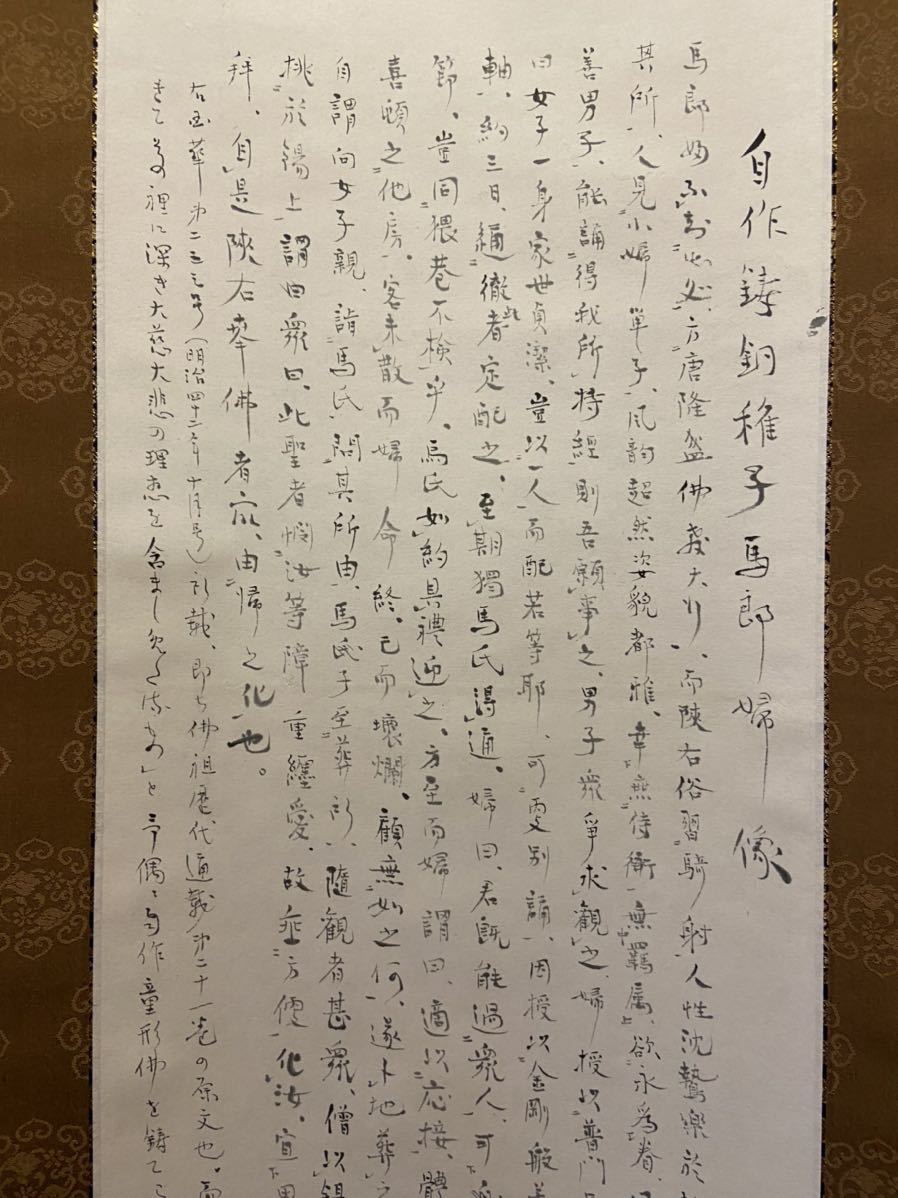 自作鋳銅稚子馬郎婦像
馬郎婦不知出処、方唐隆盛佛教大行、而陝右俗習騎射人性沈鷙樂於
其所、人見小婦単子、風韵超然姿貌都雅、幸無侍衛、無羈属、欲永為眷、
善男子、能誦得我所持經則吾願事之、男子衆爭求觀之、婦授以普門
曰女子一身家世貞潔、豈以一人而配若等耶、可更別誦、因授以金剛般若
軸、約三日、通徹此者定配之、至期獨馬氏得通、婦曰、君既能過衆人、可
節、豈同猥巷不検乎、馬氏如約具禮迎之、方至而婦謂曰、適以応接、體
喜頓之他房、客未散而婦命終、已而壞爛、顧無如之何、遂卜地葬之
自謂向女子親、詣馬氏問其所由、馬氏子至葬所、隨觀者甚衆、僧以錫
挑於錫上、謂曰衆曰、此聖者憫汝等障重纏愛、故垂方便化汝、宜思
拜、自是陝右奉佛者衆、由婦之化也。
右国華第二三三号(明治四十二年十月号)所載、即ち佛祖歴代通載第二十一巻の原文也。而
裡に深き大慈大悲の理想を含ましめ と 予偶々自作童形佛を鋳て